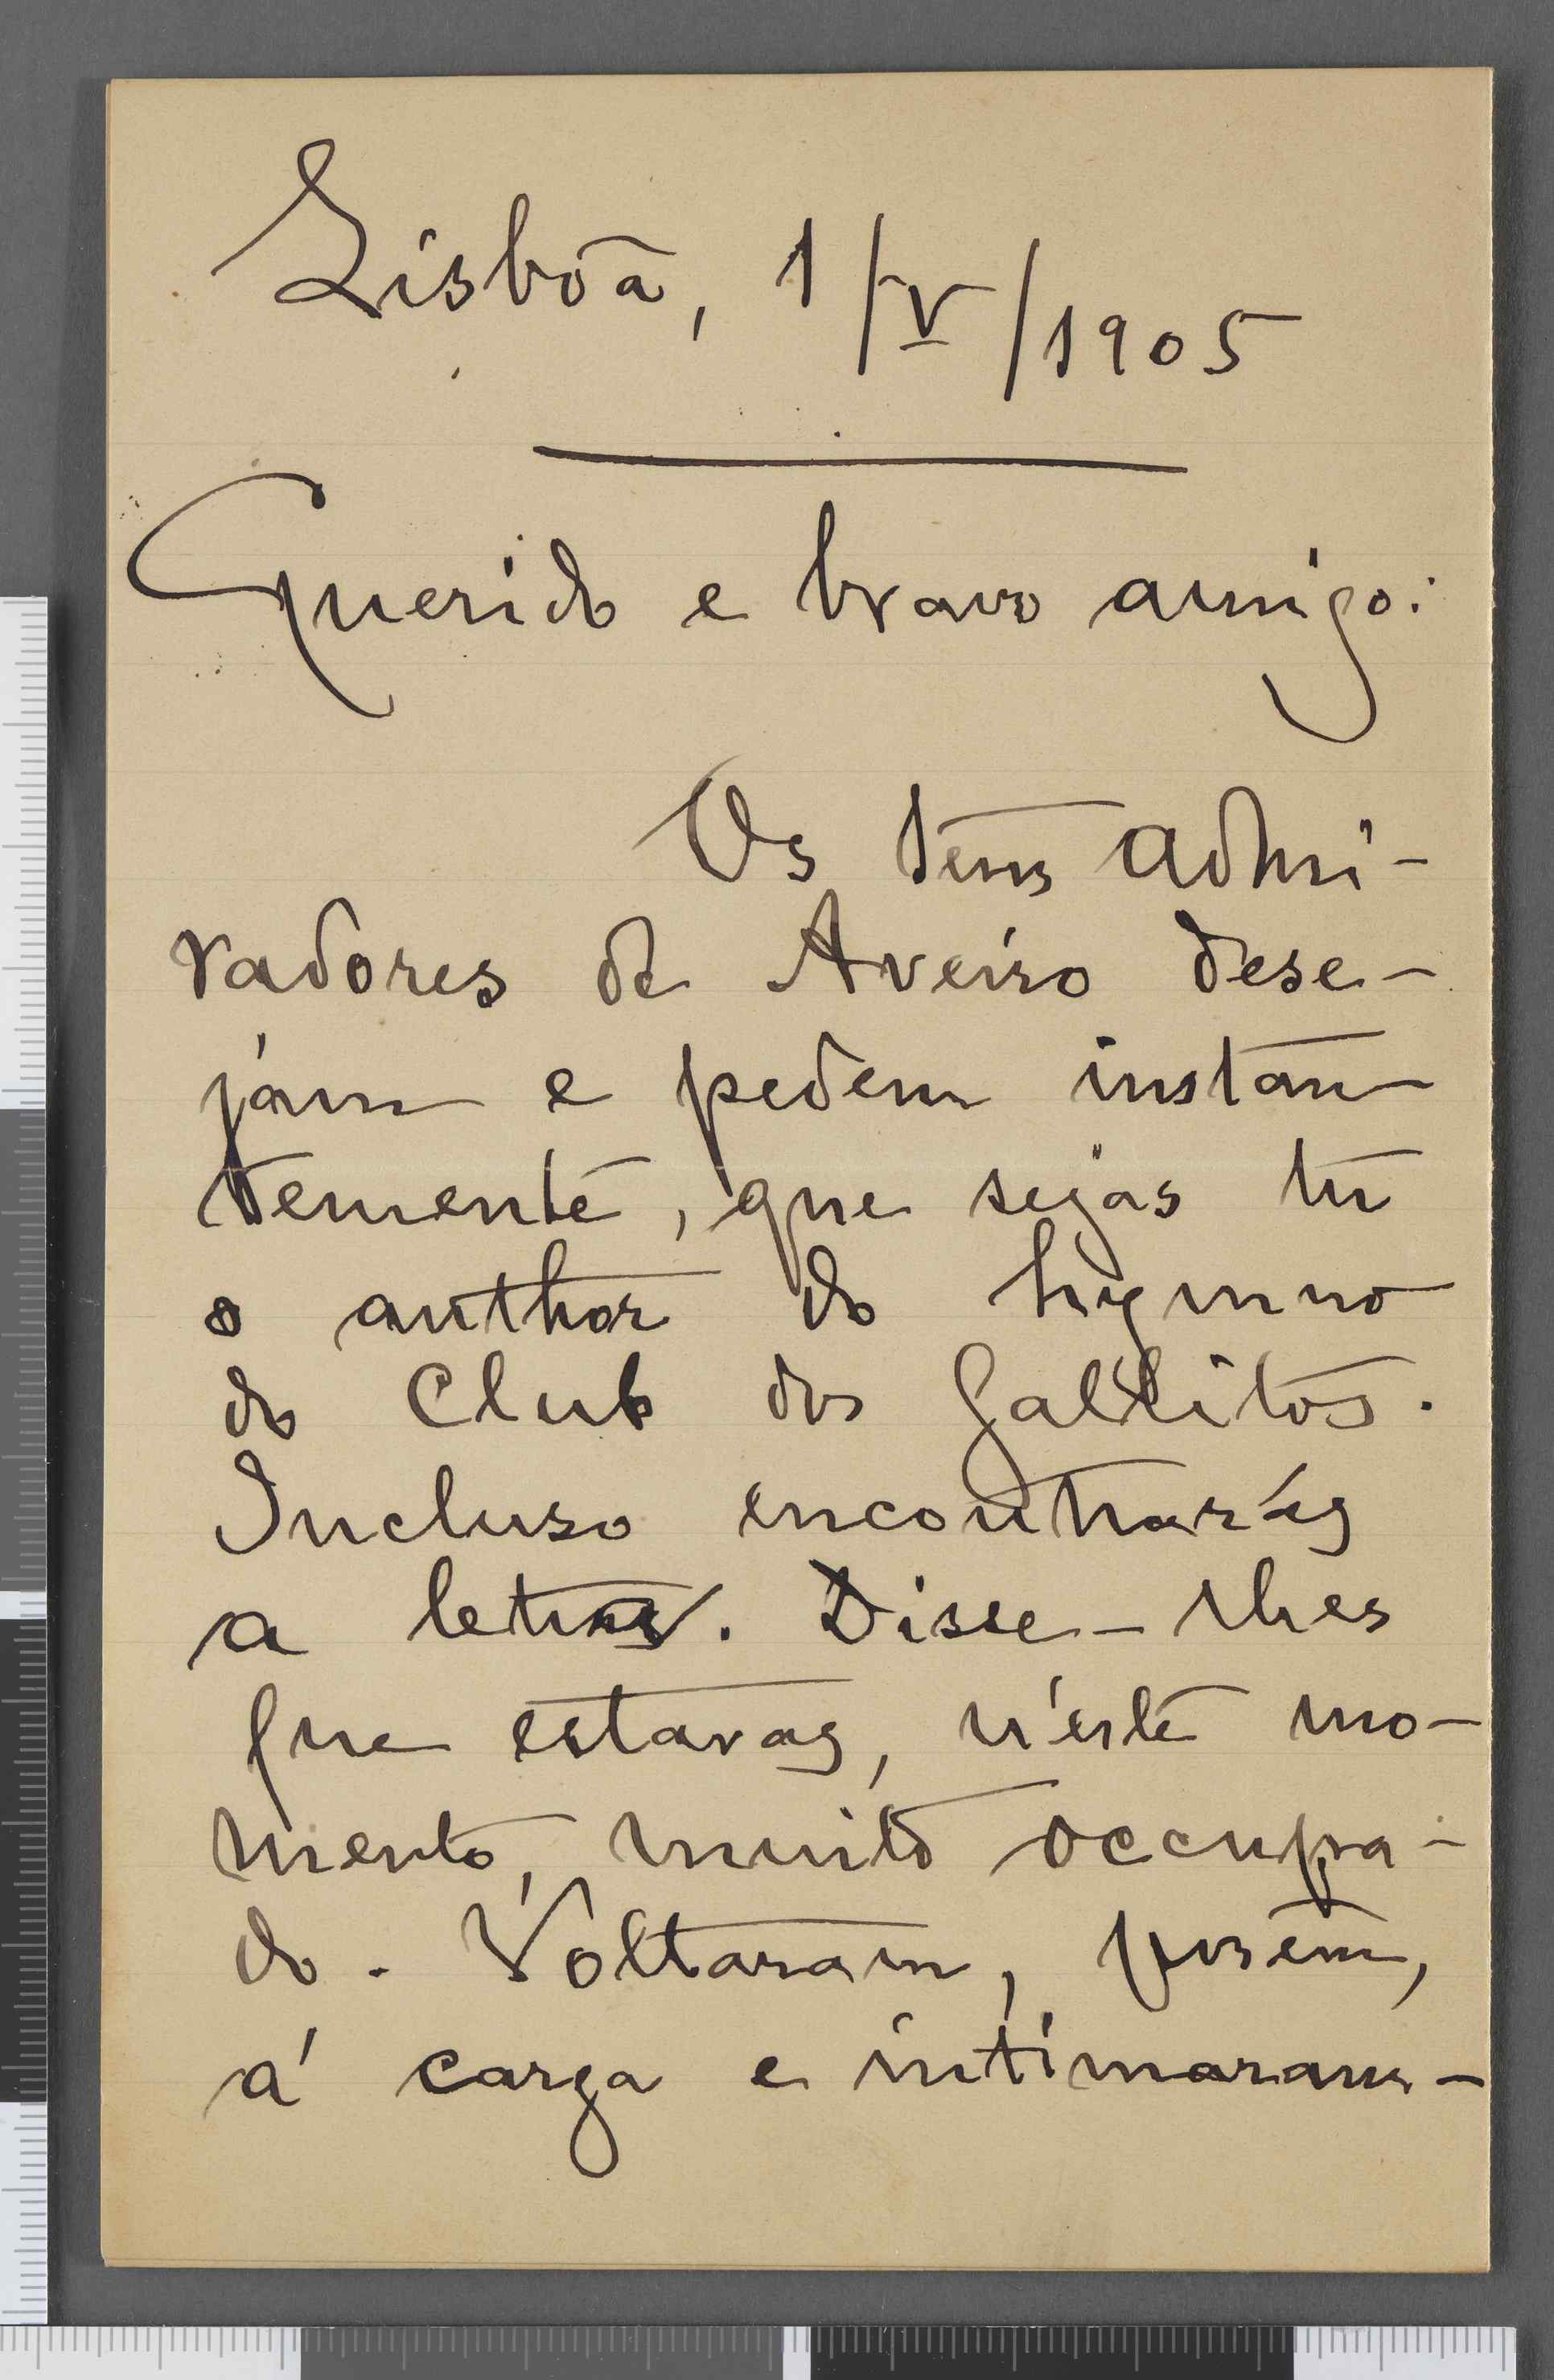 Lisbôa, 1/V/1905
Querido e bravo amigo:
Os teus admi-
radores de Aveiro dese-
jam e pedem instan-
temente, que sejas tu
o author do hymno
do Club dos Gallitos.
Incluso encontrarás
a letra. Disse-lhes
que estavas, n'este mo-
mento, muito occupa-
do. Voltaram, porém,
á carga e intimaram-